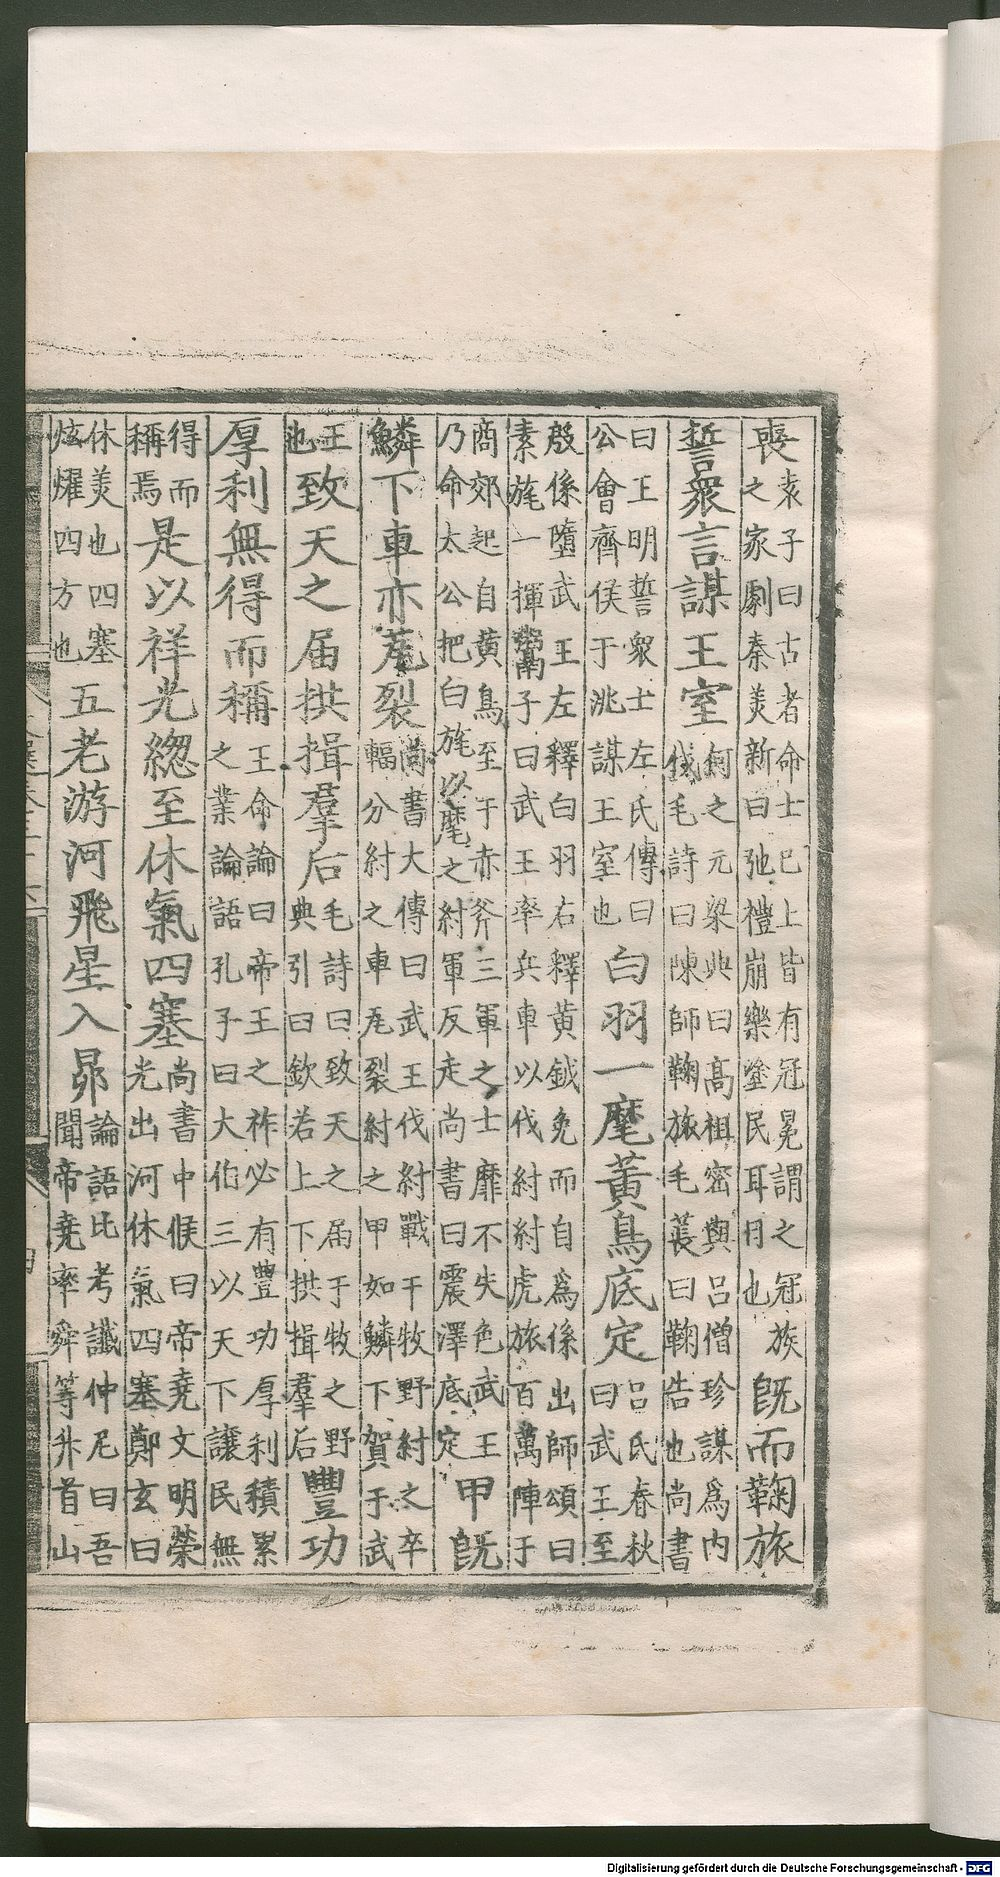 喪袁子曰古者命士已上皆有冠冕謂之冠族之家劇秦美新曰弛禮崩樂塗民耳目也既而鞠旅
誓衆言謀王室何之元梁典曰高祖密與呂僧珍謀爲内伐毛詩曰陳師鞠旅毛萇曰鞠告也尚書
曰王明誓衆士左氏傳曰公會齊侯于洮謀王室也白羽一麾黄鳥底定吕氏春秋曰武王至
殷係墮武王左釋白羽右釋黄鉞免而自爲係出師頌曰素旄一揮鬻子曰武王率兵車以伐紂紂虎旅百萬陣于
商郊起自黄鳥至于赤斧三軍之士靡不失色武王乃命太公把白旄以麾之紂軍反走尚書曰震澤底定甲既
鱗下車亦瓦裂尚書大傳曰武王伐紂戰于牧野紂之卒輻分紂之車瓦裂紂之甲如鱗下賀于武
王也致天之届拱揖羣后毛詩曰致天之届于牧之野典引曰欽若上下拱揖羣后豐功
厚利無得而稱王命論曰帝王之祚必有豐功厚利積累之業論語孔子曰大伯三以天下讓民無
得而稱焉是以祥光緫至休氣四塞尚書中候曰帝堯文明榮光出河休氣四塞鄭玄曰
休美也四塞炫燿四方也五老游河飛星入昴論語比考讖仲尼曰吾聞帝堯率舜等升首山
Digitalisierung gefördert durch die Deutsche Forschungsgemeinschaft - DFG